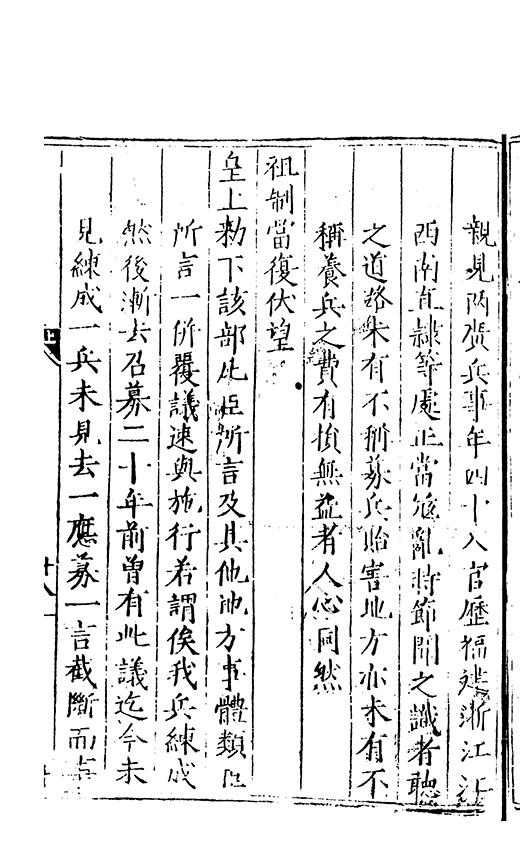 親見两廣兵事年四十入官歷福建浙江江
西南直隸等處正當寇亂時節聞之識者聽
之道路未有不稱募兵貽害地方亦未有不
稱養兵之費有損無益者人心同然
祖制當復伏望
皇上勑下該部此臣所言及其他地方事體類臣
所言一併覆議速與施行若謂俟我兵練成
然後漸去召募二十年前曾有此議迄今未
見練成一兵未見去一應募一言截斷而